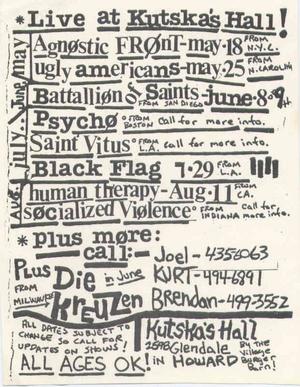 * Live at Kutska's Hall!
Agnøstic FRØnT-may-18 FROM N.Y.C.
ugly americans-may-25 FROM N.CAROLINA
Battalliøn of Saints-june-8&9th
FROM SAN DIEGO
Psychø FROM BOSTON Call for more info.
Saint Vitus FROM L.A. call for more info.
Black Flag 7-29 FROM L.A.
human therapy-Aug-11 FROM CA.
søcialized Viølence FROM INDIANA Call for more info.
Aug. July. June/may
* plus møre:
call:
Joel-4356063
KURT-494-6891
Brendan-499-3552
Plus Die Kreuzen in June
FROM MILWAUKEE
ALL DATES SUBJECT TO
CHANGE SO CALL FOR
UPDATES ON SHOWS!
ALL AGES OK!
Kutska's Hall
Glendale
in HOWARD
By the
Village
Burger
Barn!